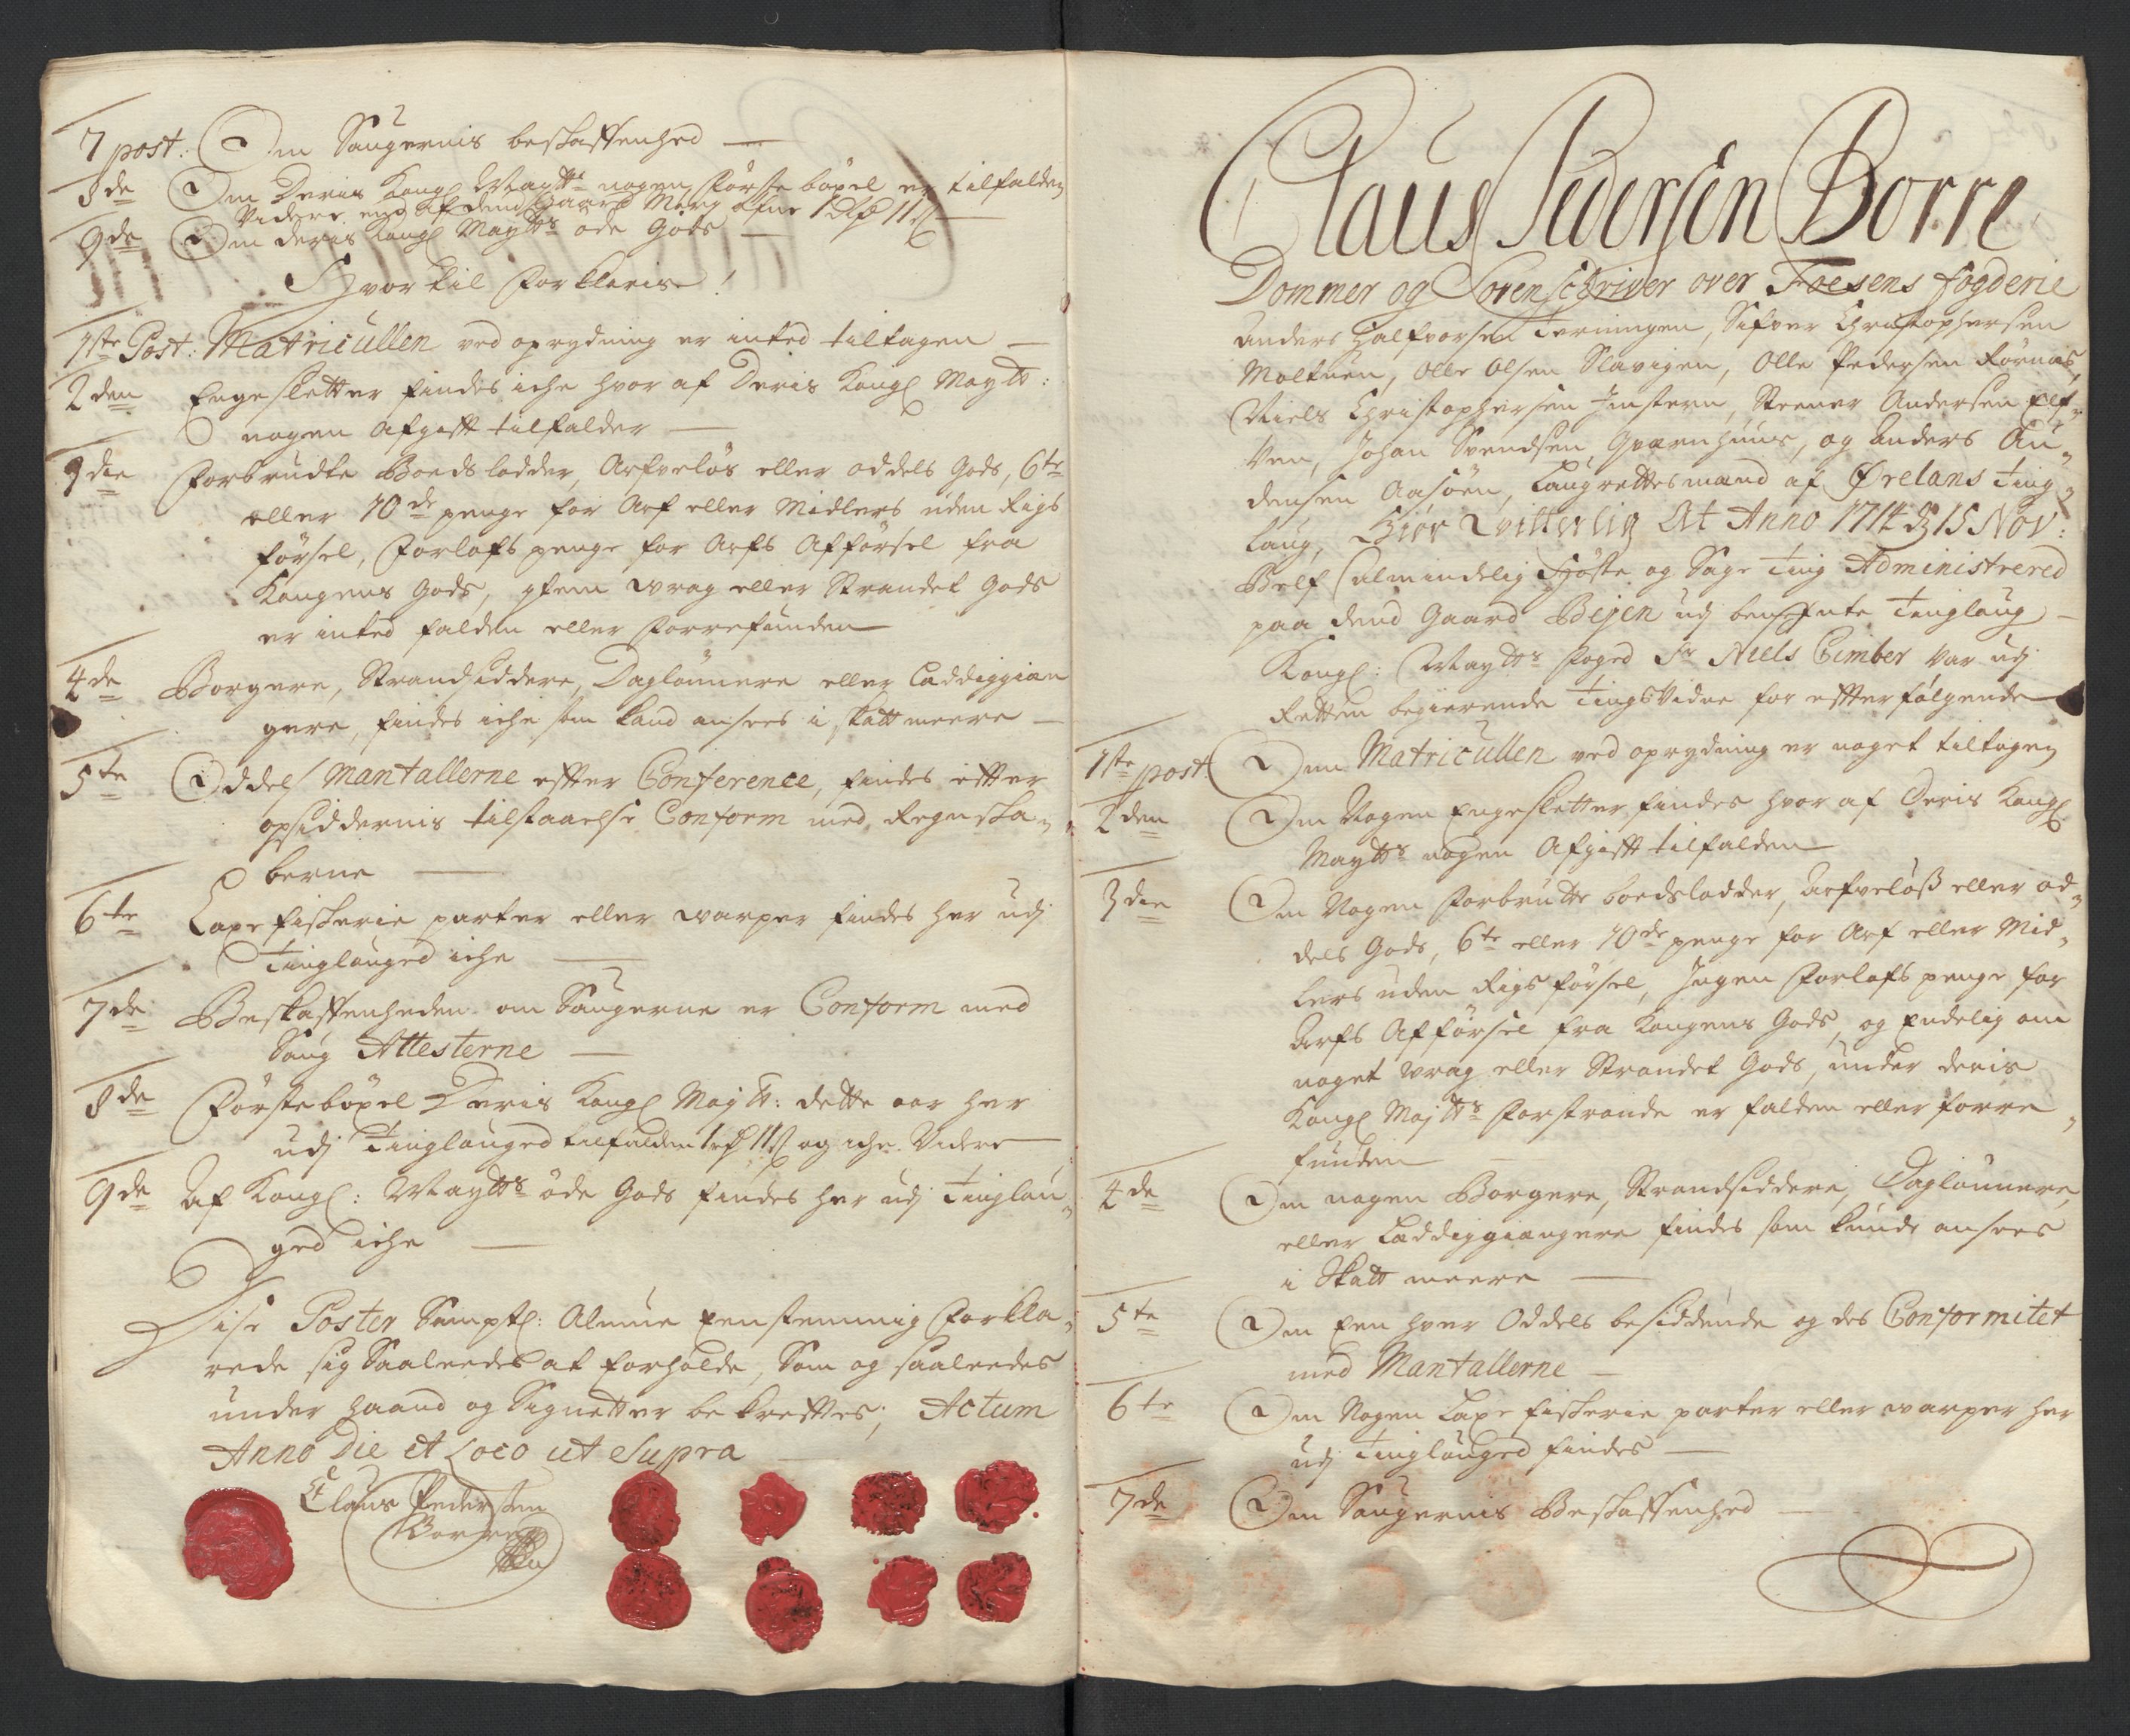 7 post: Om Saugernis beskaffenhed
8de Om Deris Kongl Maytts nogen Første bøxel er tilfalden
Videre end af dend Gaard 1 rdr 11 s
9de Om deris Kongl Maytts øde Gods
Hvor til forklaris!
1ste Post: Matricullen ved oprydning er inted tiltagen
2den Engesletter findes iche hvor af Deris Kongl Maytt:
nogen Afgifft tilfalder
3die Forbrudte Boedslodder, Arfveløs eller oddels Gods, 6te
eller 10de penge for Arf eller Midlers uden Rigs
førsel, Forlofs penge for Arfs Afførsel fra
Kongens Gods, Item wrag eller Strandet Gods
er inted falden eller forrefunden
4de Borgere, Strandsiddere, Dagløünnere eller Laddiggien
gere, findes iche som kand ansees i skatt meere
5te Oddels Mantallerne effter Conference, findes effter
opsiddernis tilstaaelse Conform med Regnska-
berne
6te Laxe fiskerie parter eller warper findes her udj
Tinglauged iche
7de Beskaffenheden om Saugerne er Conform med
Saug Attesterne
8de Førstebøxel Deris Kongl Maytt: dette aar her
udj Tinglauged tilfalden 1 rdr 11 s og iche Videre
9de Af Kongl: Maytts øde Gods findes her udj Tinglau-
ged iche
Disse Poster Samptl: Almue Eenstemmig forkla-
rede sig Saaleedes at forholde, Som og saaleedes
under Haand og Signetter bekrefftes, Actum
Anno Die et Loco ut Supra
Claus Pedersen
Borre
Claus Pedersen Borre
Dommer og Sorenschriver over Foesens fogderie
Anders Halfvorsen Terningen, Sifver Christophersen
Moltuen, Olle Olsen Slavigen, Olle Pedersen Rørnes,
Niels Christophersen Imstern, Steener Andersen Elf-
ven, Johan Svendsen Qvernhuus, og Anders An-
densen Aasøen, Laugrettesmænd af Ørelans Ting-
laug, Giør Vitterlig At Anno 1714 d 15 Nov:
Blef almindelig Høste og Sage Ting Administrered
paa dend Gaard Bejen udj bemeldte Tinglaug
Kongl: Maytts foged Sr Niels Cimber var udj
Retten begierende Tings Vidne for effterfølgende
1ste post: Om Matricullen ved oprydning er noget tiltagen
2den Om Nogen Engesletter findes hvor af Deris Kongl
Maytts nogen Afgifft tilfalden
3die Om Nogen Forbrutte boedslodder, Arfveløß eller od-
dels Gods, 6te eller 10de penge for Arf eller Mid-
lers uden Rigs førsel, Ingen Forlofs penge for
Arfs Afførsel fra Kongens Gods, og Endelig om
noget wrag eller Strandet Gods, under deris
Kongl Majtts Forstrande er falden eller forre-
funden
4de Om nogen Borgere, Strandsiddere, Dagløünnere,
eller Læddiggiengere findes som kunde ansees
i Skatt meere
5te Om Een hver Oddels besiddende og des Conformitet
med Mantallerne
6te Om Nogen Laxe fiskerie parter eller warper her
udj Tinglauged findes
7de Om Saugernis Beskaffenhed